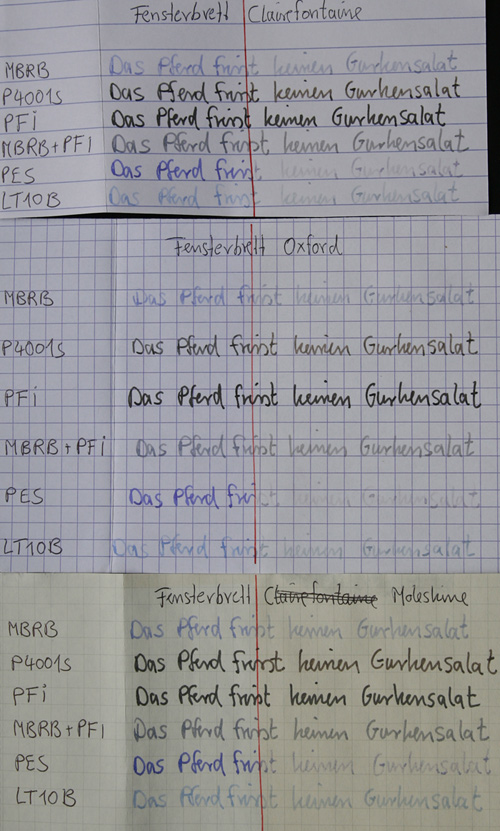 Fensterbrett Clairefontaine
MBRB Das Pferd frisst keinen Gurkensalat
P4001s Das Pferd frisst keinen Gurkensalat
PFi Das Pferd frisst keinen Gurkensalat
MBRB+PFi Das Pferd frisst keinen Gurkensalat
PES Das Pferd frisst keinen Gurkensalat
LT10B Das Pferd frisst keinen Gurkensalat
Fensterbrett Oxford
MBRB Das Pferd frisst keinen Gurkensalat
P4001s Das Pferd frisst keinen Gurkensalat
PFi Das Pferd frisst keinen Gurkensalat
MBRB+PFi Das Pferd frisst keinen Gurkensalat
PES Das Pferd frisst keinen Gurkensalat
LT10B Das Pferd frisst keinen Gurkensalat
Fensterbrett Clairefontaine Moleskine
MBRB Das Pferd frisst keinen Gurkensalat
P4001s Das Pferd frisst keinen Gurkensalat
PFi Das Pferd frisst keinen Gurkensalat
MBRB+PFi Das Pferd frisst keinen Gurkensalat
PES Das Pferd frisst keinen Gurkensalat
LT10B Das Pferd frisst keinen Gurkensalat